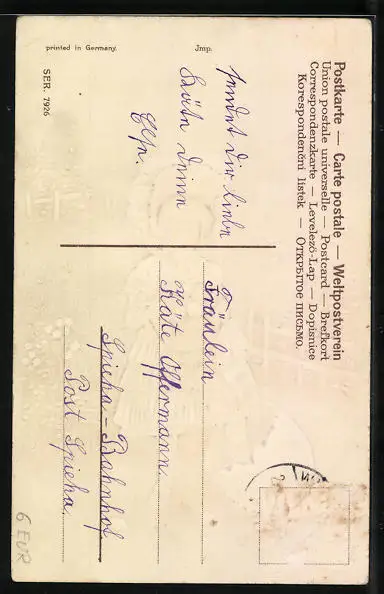 Postkarte — Carte postale — Weltpostverein
Union postale universelle — Postcard — Brefkort
Correspondenzkarte — Levelező-Lap — Dopisnice
Korespondenční listek — Открытое письмо.
sendet dir liebe
Käte
Else.
Fräulein
Käte Offermann.
Bahnhof
Post
printed in Germany.
Jmp.
SER. 7926
6 EUR